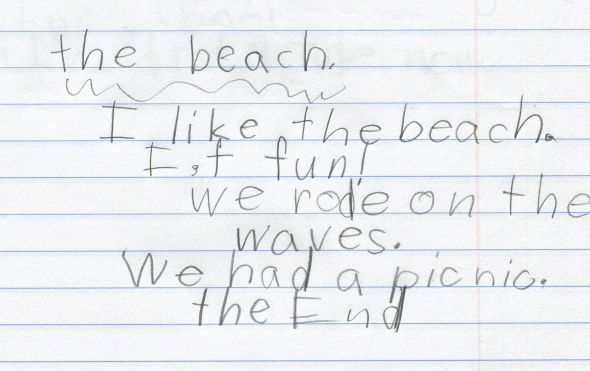 the beach.
I like the beach.
I,t fun!
we rode on the
waves.
We had a picnic.
the End